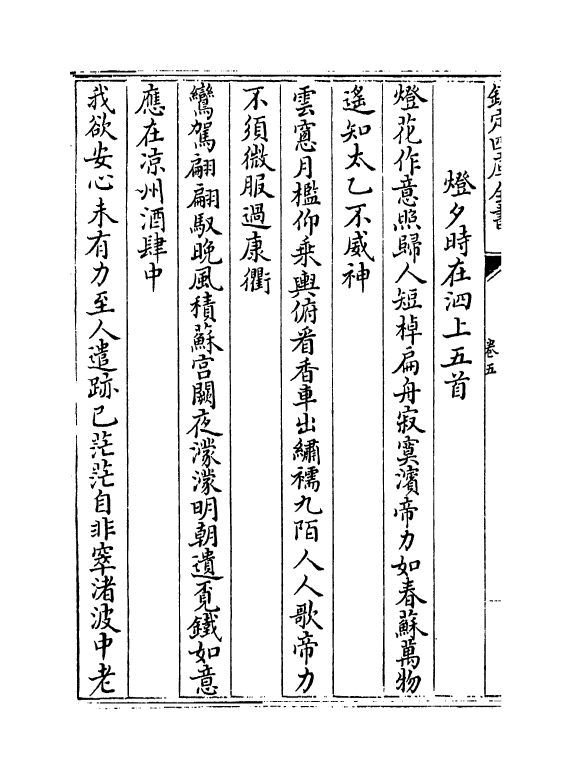 欽定四庫全書
卷五
燈夕時在泗上五首
燈花作意照歸人短棹扁舟寂寞濱帝力如春蘇萬物
遙知太乙不威神
雲窻月檻仰乗輿俯看香車出繡襦九陌人人歌帝力
不須微服過康衢
鸞駕翩翩馭晚風積蘇宮闕夜濛濛明朝遺覓鐵如意
應在涼州酒肆中
我欲安心未有力至人遣跡已茫茫自非窣渚波中老